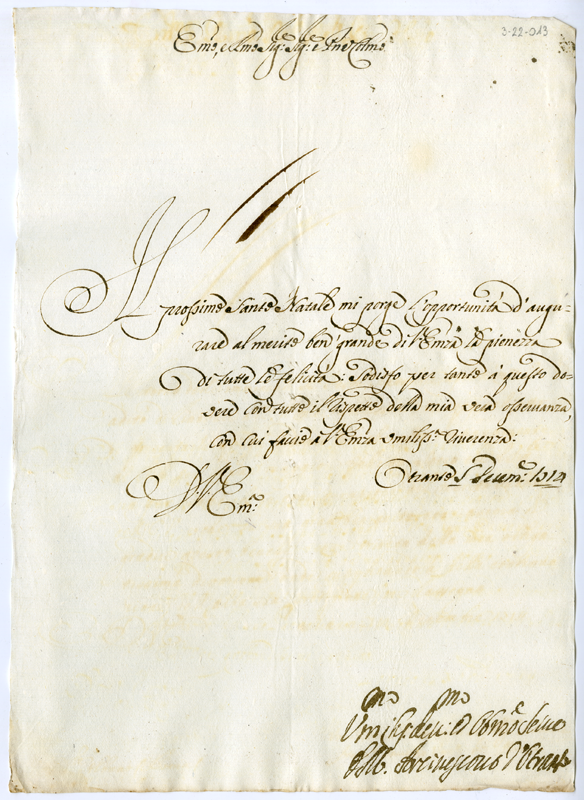 3-22-013
Emo, e Rmo Sig:r Sig:r e Pne Colmo
Il
prossimo Santo Natale mi porge l'opportunità d'augu-
rare al merito ben grande di V. Emza la pienezza
di tutte le felicità: Sodisfo per tanto à questo do-
vere con tutto il rispetto della mia vera osservanza,
con cui faccio à V. Emza umiliss:a riverenza:
Otranto 5 Decem:e 1714
D. V. Em:a
Umiliss. Dev: et Obmo Serve
Arcivescovo d'Otranto